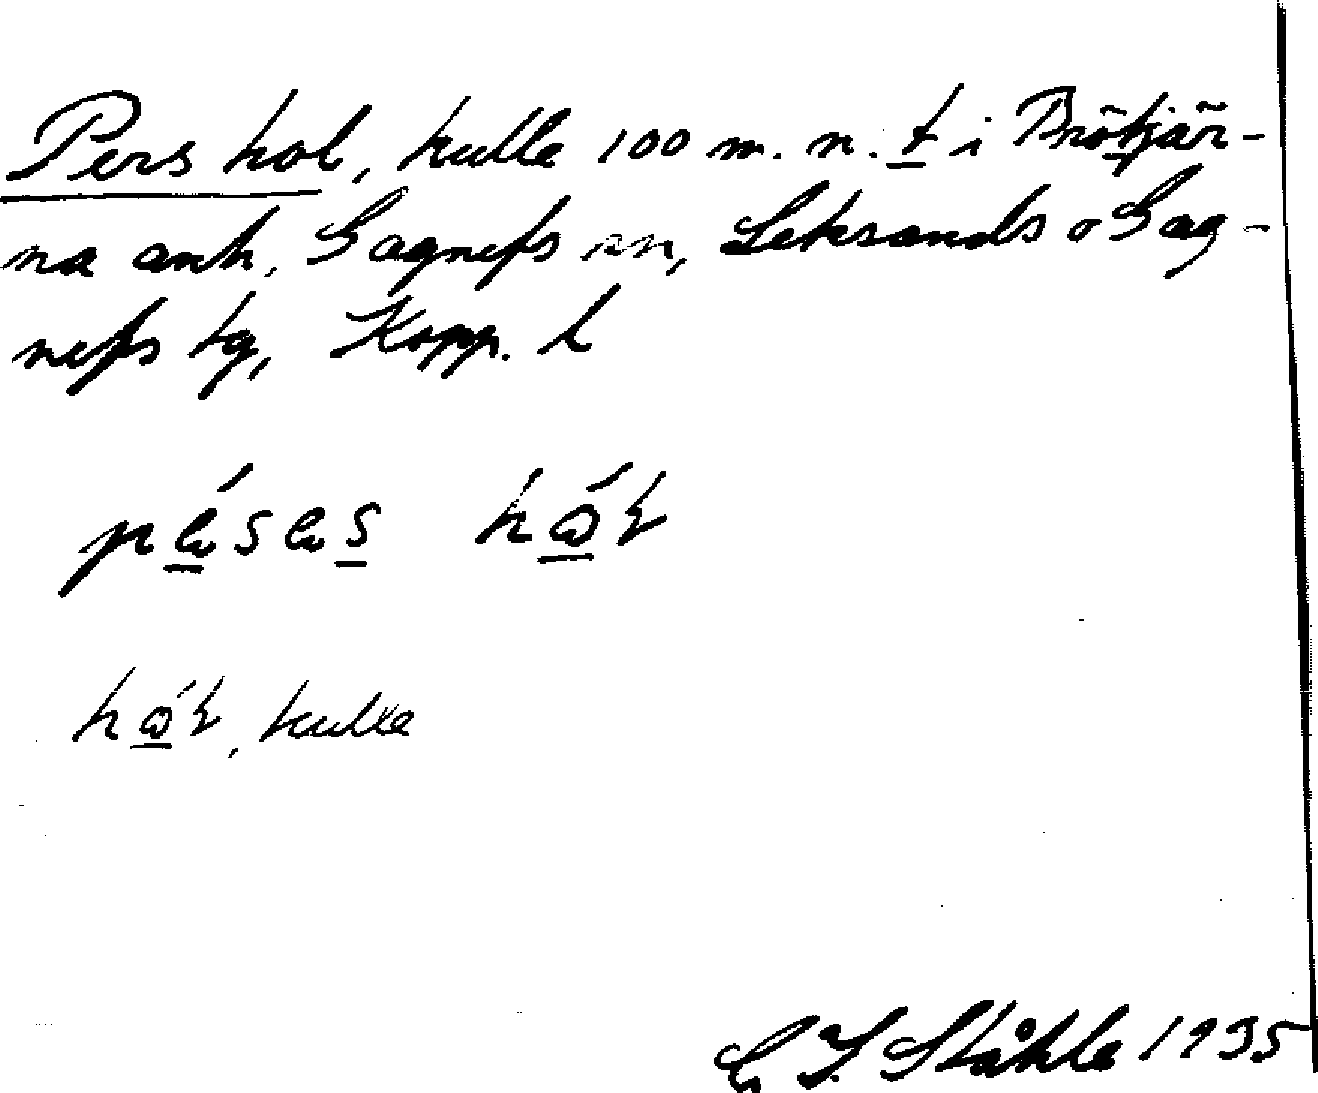 Pers kol, kulle 100 m. n. t i Brötjär-
na anh, Gagnefs sn, Leksands o Gag-
nefs tg, Kopp. l
kulle
C. I. Ståhle 1935